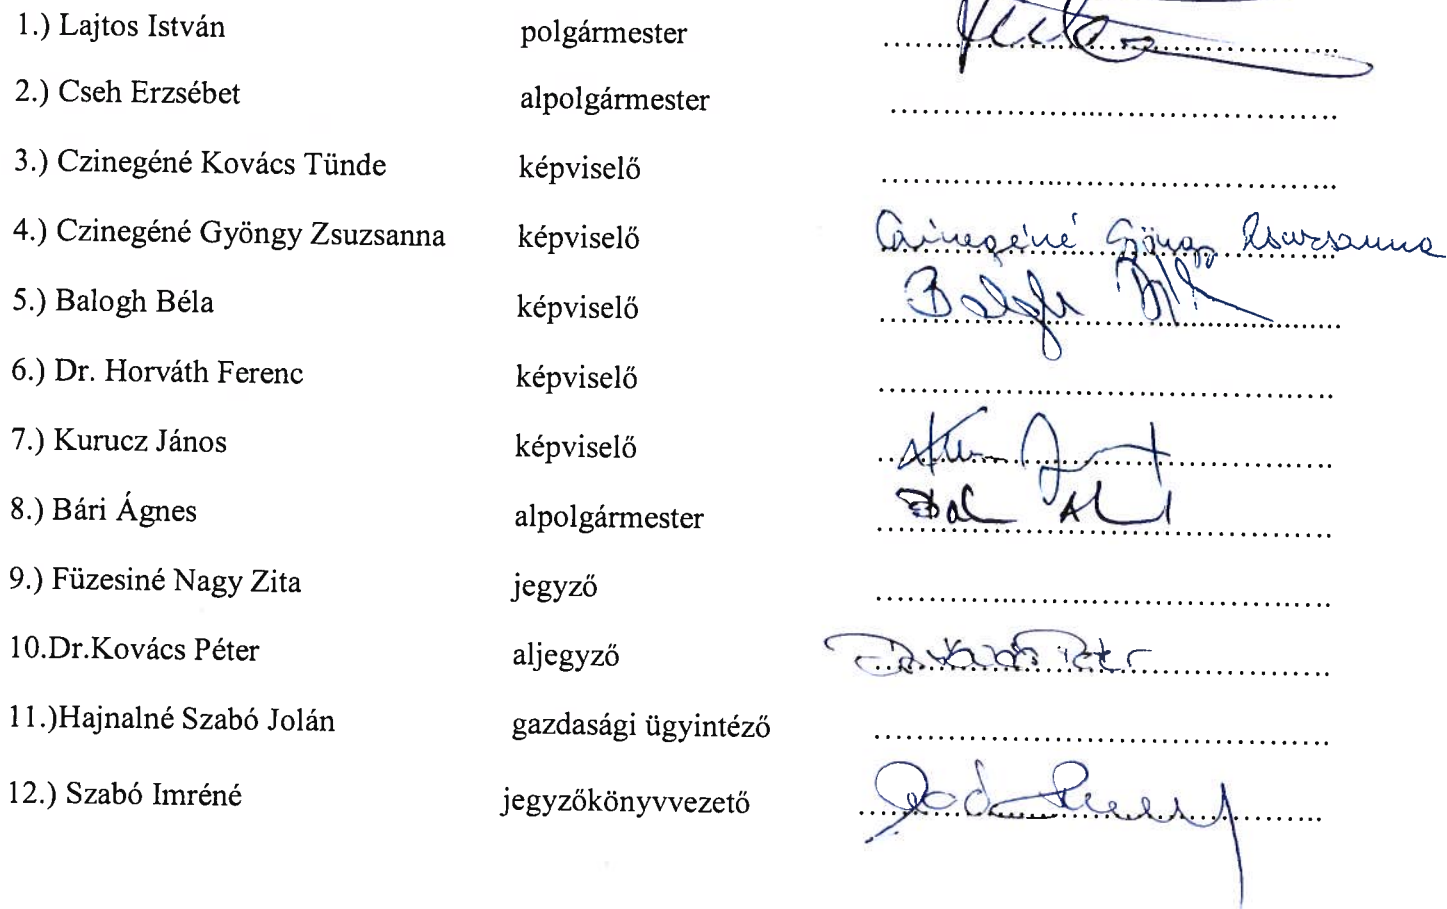 1.) Lajtos István polgármester
2.) Cseh Erzsébet alpolgármester ........................................
3.) Czinegéné Kovács Tünde képviselő ........................................
4.) Czinegéné Gyöngy Zsuzsanna képviselő Czinegéné Gyöngy Zsuzsanna
5.) Balogh Béla képviselő Balogh Béla
6.) Dr. Horváth Ferenc képviselő ........................................
7.) Kurucz János képviselő
8.) Bári Ágnes alpolgármester
9.) Füzesiné Nagy Zita jegyző ........................................
10.Dr.Kovács Péter aljegyző Dr. Kovács Péter
11.)Hajnalné Szabó Jolán gazdasági ügyintéző ........................................
12.) Szabó Imréné jegyzőkönyvvezető